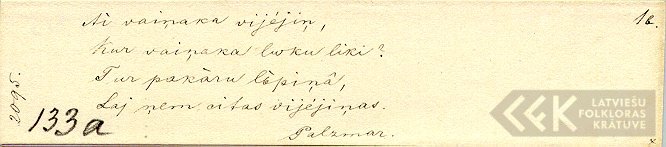 1b.
Ai vaiņaka vijējiņ,
Kur vaiņaka loku liki?
Tur pakāru lēpiņâ,
Laj ņem citas vijējiņas.
Palzmar.
2095.
133a
LATVIEŠU
FOLKLORAS
KRĀTUVE
x